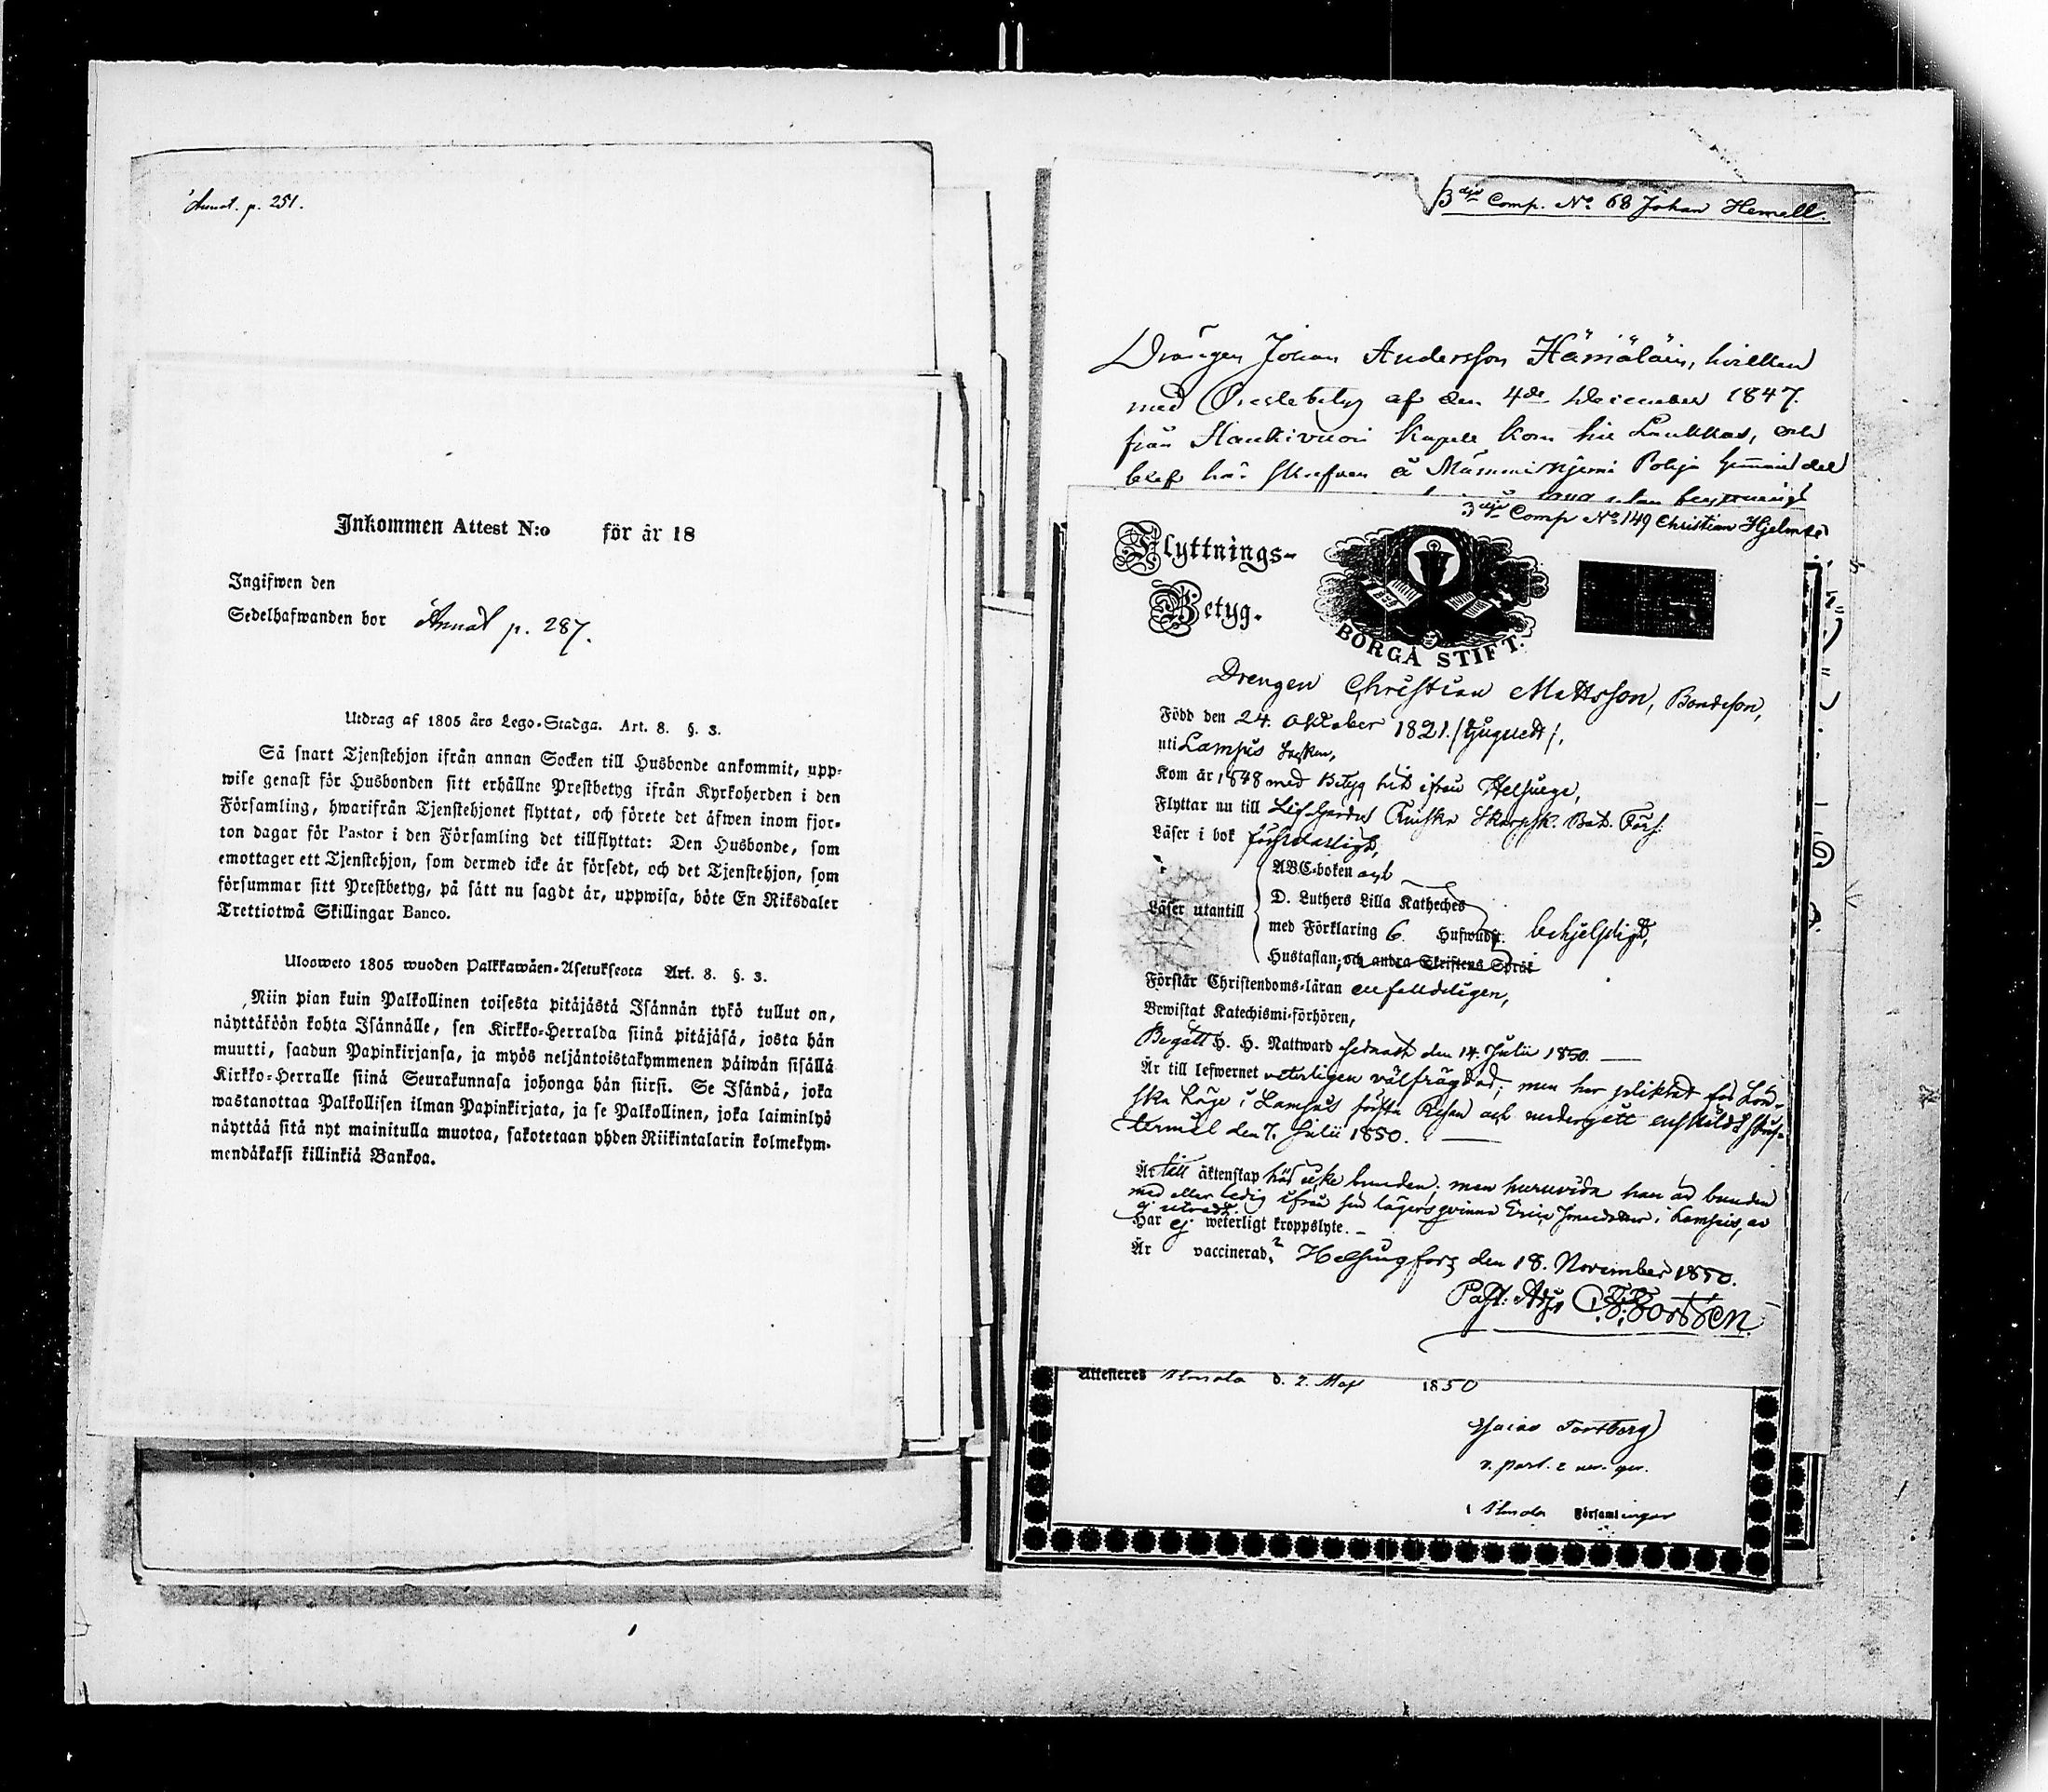 Annot. p. 251.
Inkommen Attest N:o för år 18
Ingifwen den
Sedelhafwanden bor Annot p. 287.
Utdrag af 1805 års Lego-Stadga. Art. 8. §. 3.
Så snart Tjenstehjon ifrån annan Socken till Husbonde ankommit, upp-
wise genast för Husbonden sitt erhållne Prestbetyg ifrån Kyrkoherden i den
Församling, hwarifrån Tjenstehjonet flyttat, och förete det äfwen inom fjor-
ton dagar för Pastor i den Församling det tillflyttat: Den Husbonde, som
emottager ett Tjenstehjon, som dermed icke är försedt, och det Tjenstehjon, som
försummar sitt Prestbetyg, på sätt nu sagdt är, uppwisa, böte En Riksdaler
Trettiotwå Skillingar Banco.
Ulosweto 1805 wuoden Palkkawäen-Asetuksesta Art. 8. §. 3.
Niin pian kuin Palkollinen toisesta pitäjästä Isännän tykö tullut on,
näyttäköön kohta Isännälle, sen Kirkko-Herralda siinä pitäjäsä, josta hän
muutti, saadun Papinkirjansa, ja myös neljäntoistakymmenen päiwän sisällä
Kirkko-Herralle siinä Seurakunnasa johonga hän siirsi. Se Isändä, joka
wastanottaa Palkollisen ilman Papinkirjata, ja se Palkollinen, joka laiminlyö
näyttää sitä nyt mainitulla muotoa, sakotetaan yhden Riikintalarin kolmekym-
mendäkaksi killinkiä Bankoa.
3dje Comp. No. 68 Johan Hemell.
Drängen Johan Andersson Hämäläin, hvilken
med Prestebetyg af den 4de December 1847.
från Haukivuori Kapell kom hit Laukkas, och
blef här skrefven å Mämminiemi Pohja hemman del
3dje Comp No 149 Christian Hjelmte
Flyttnings-
Betyg.
BORGÅ STIFT.
Drengen Christian Mattsson, Bondeson,
Född den 24. Oktober 1821. /tjuguett/,
uti Lampis Socken,
Kom år 1848 med Betyg hit ifrån Helsinge,
Flyttar nu till Lif-Gardets Finska Skarpsk. Bat. Förs.
Läser i bok försvarligt,
Läser utantill
ABC-boken och
D. Luthers Lilla Katheches
med Förklaring 6. Hufwudst. behjelpligt,
Hustaflan, och andra Skriftens Språk
Förstår Christendoms-läran enfalldeligen,
Bewistat Katechismi-förhören,
Begått H. H. Nattward sednast den 14. Julii 1850.
Är till lefwernet veterligen välfrägdad; men har pliktat för Lön-
ska läge i Lampis första Resan och undergått enskildt skrif-
termål den 7. Julii 1850.
Är till äktenskap här icke bunden; men huruvida han är bunden
med eller ledig ifrån sin lägersqvinna i Lampis, är
ej utredt.
Har ej weterligt kroppslyte.
Är vaccinerad? Helsingfors den 18. November 1850.
Past: Adj.
Attesteres d. 2. Maj 1850
Esaias
v. past.
i Församlingar